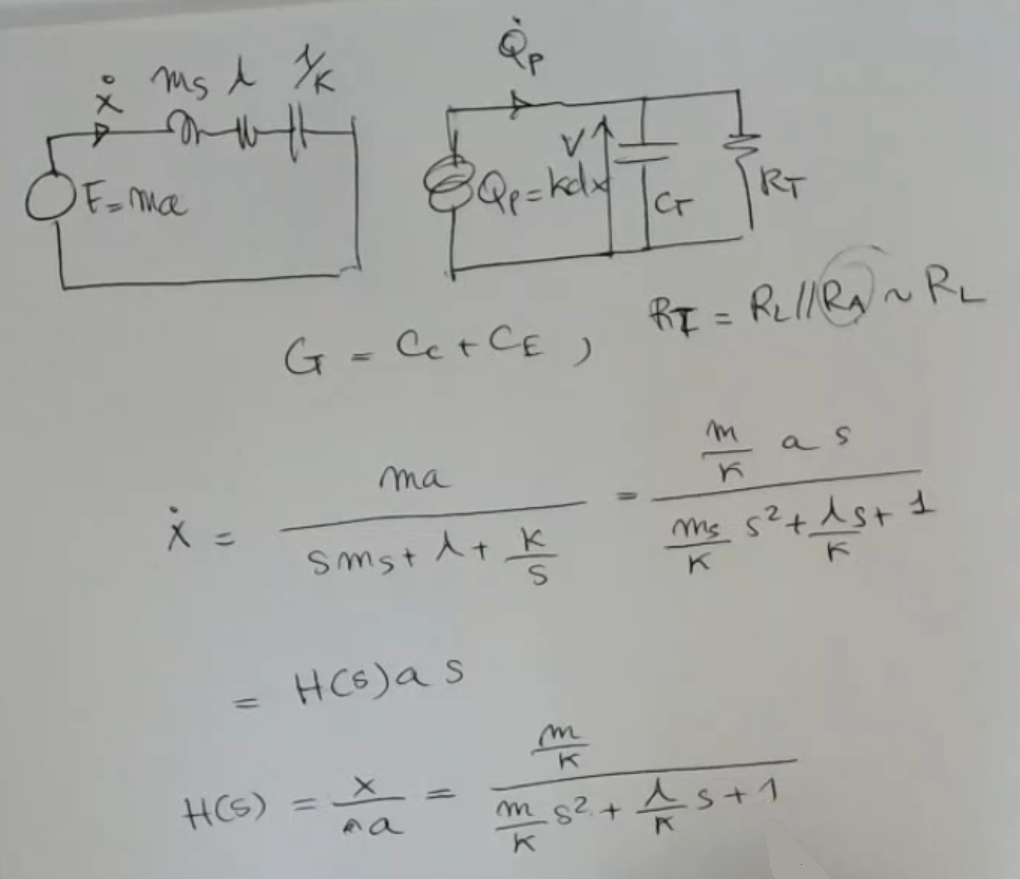 ẋ ms λ 1/K
F=ma
Q̇p
Qp=kdx V CT RT
CT = Cc + CE , RT = RL // RA ~ RL
ẋ = ma / (s ms + λ + K/s) = (m/K a s) / (ms/K s² + λ/K s + 1)
= H(s) a s
H(s) = x / a = (m/K) / (m/K s² + λ/K s + 1)